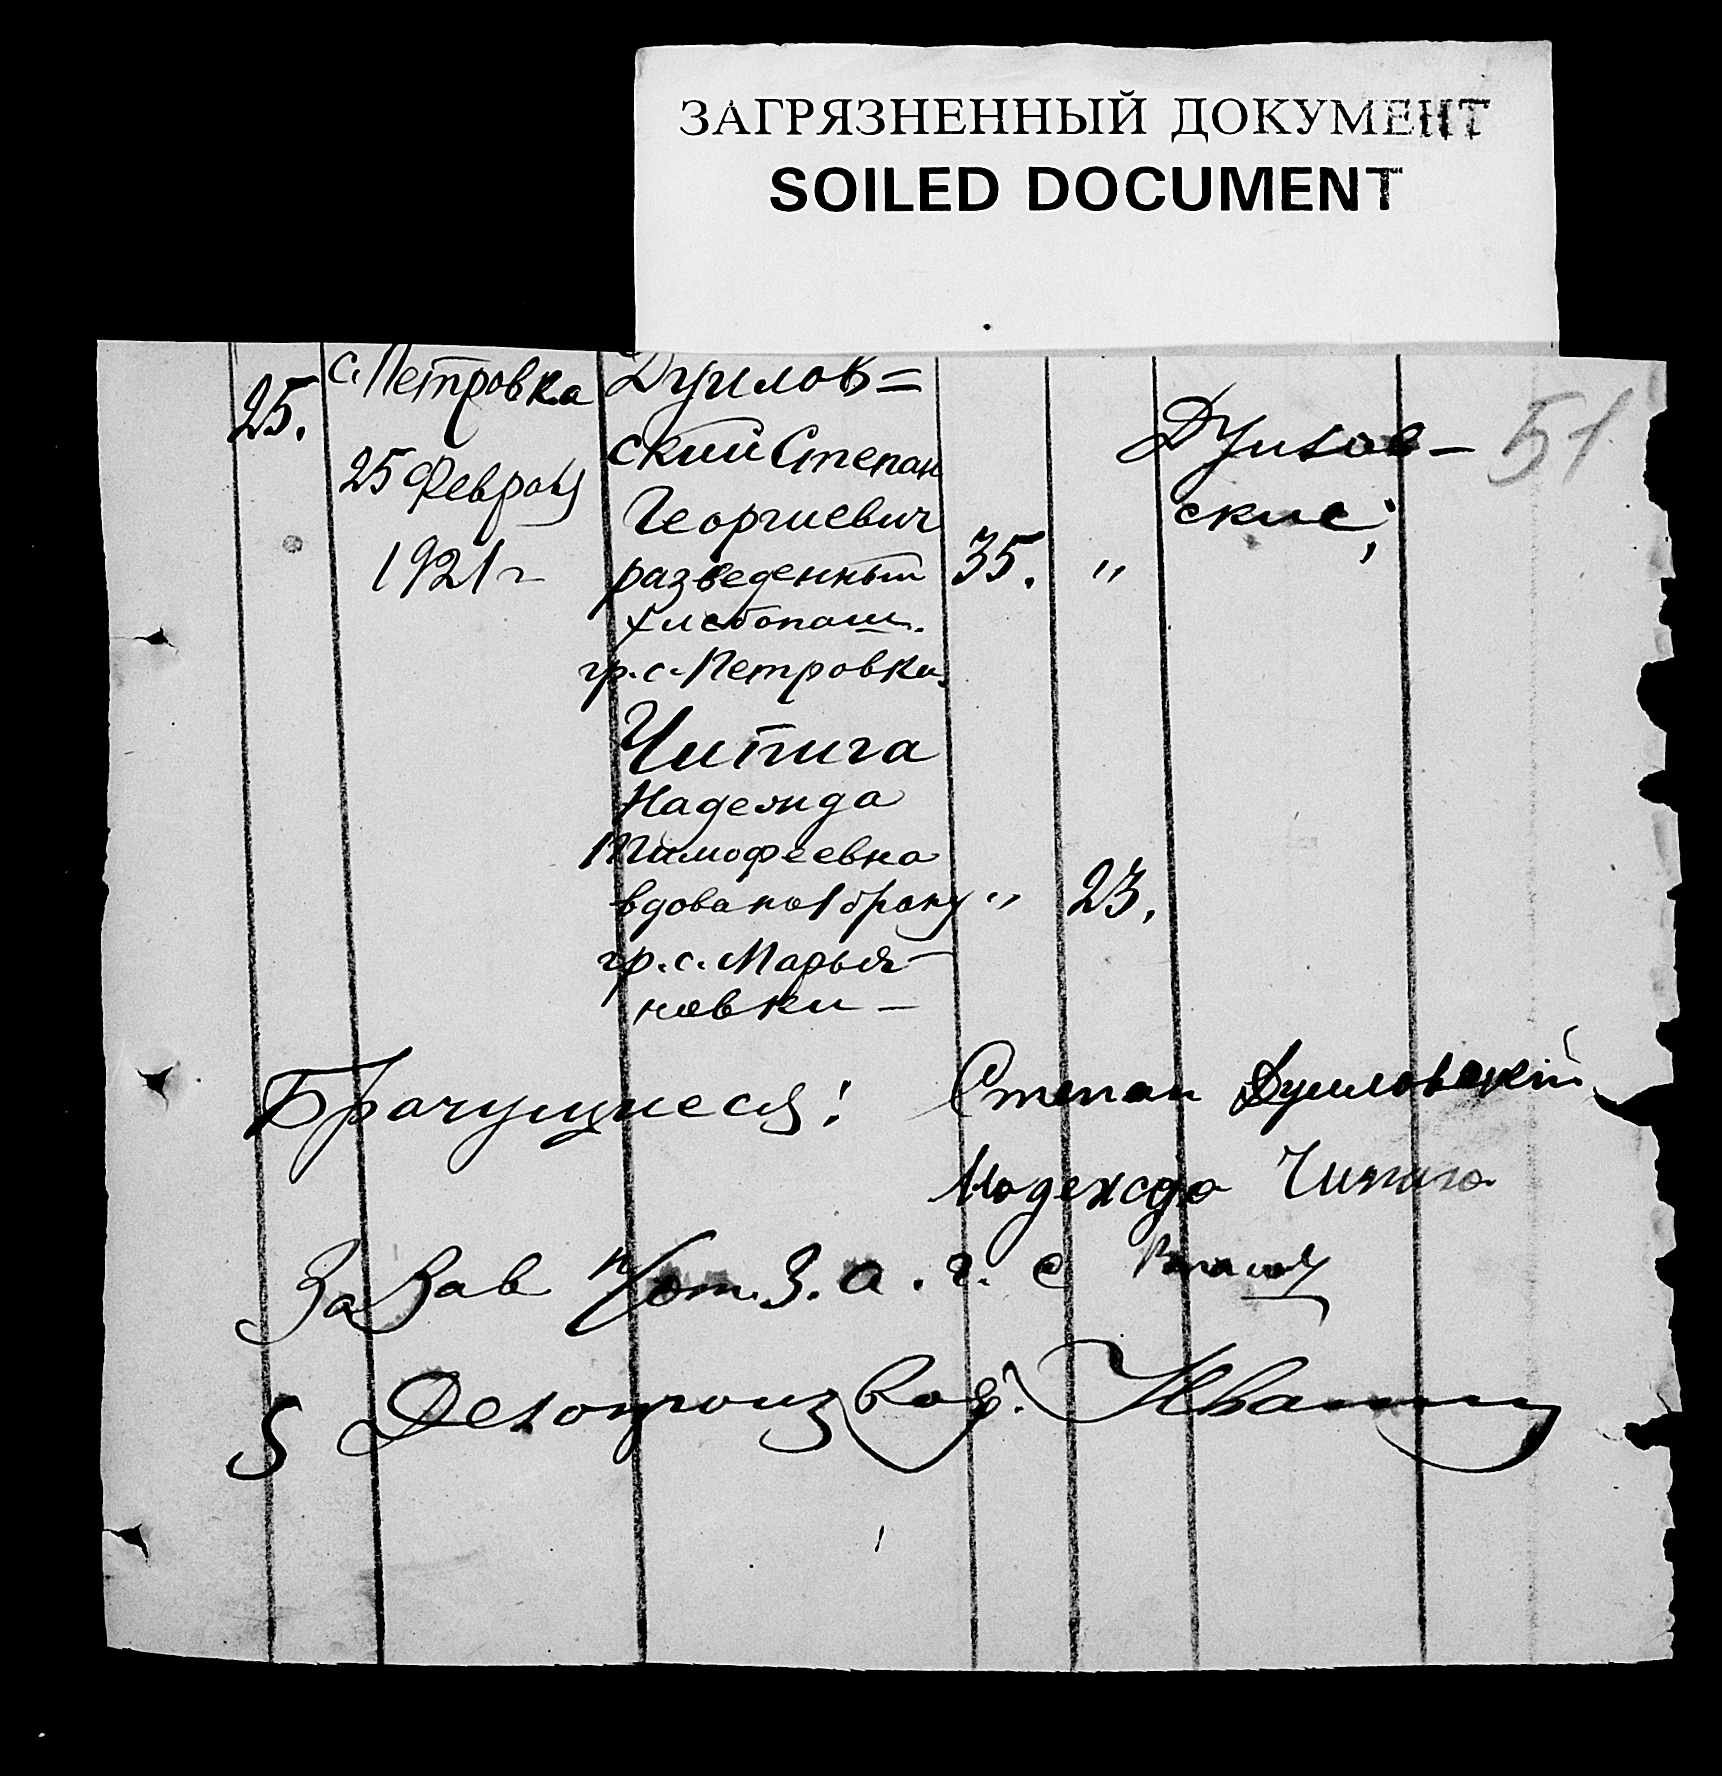 ЗАГРЯЗНЕННЫЙ ДОКУМЕНТ
SOILED DOCUMENT
51
25.
с. Петровка
25 Февраля
1921 г
Дуилов=
ский Степан
Георгиевич
разведенный
хлебопаш.
гр. с. Петровки.
35. "
Дуилов-
ские;
Чипига
Надежда
Тимофеевна
вдова по 1 браку
гр. с. Марья-
новки -
" 23.
Брачущиеся: Степан Дуиловскій
Надежда Чипига
За Зав п/от. З. а. г. с
Делопроизвод.